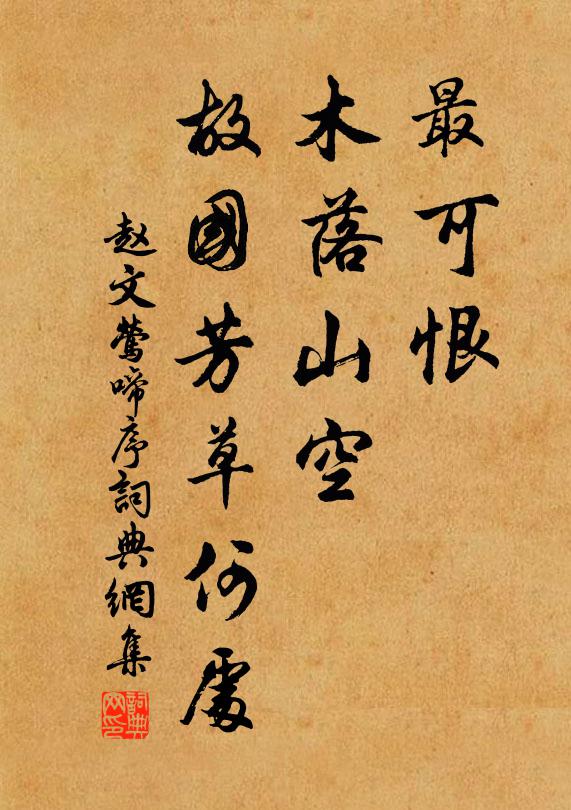 最可恨
木落山空
故國芳草何處
赵文鶯啼序詞典網集
詞典网印